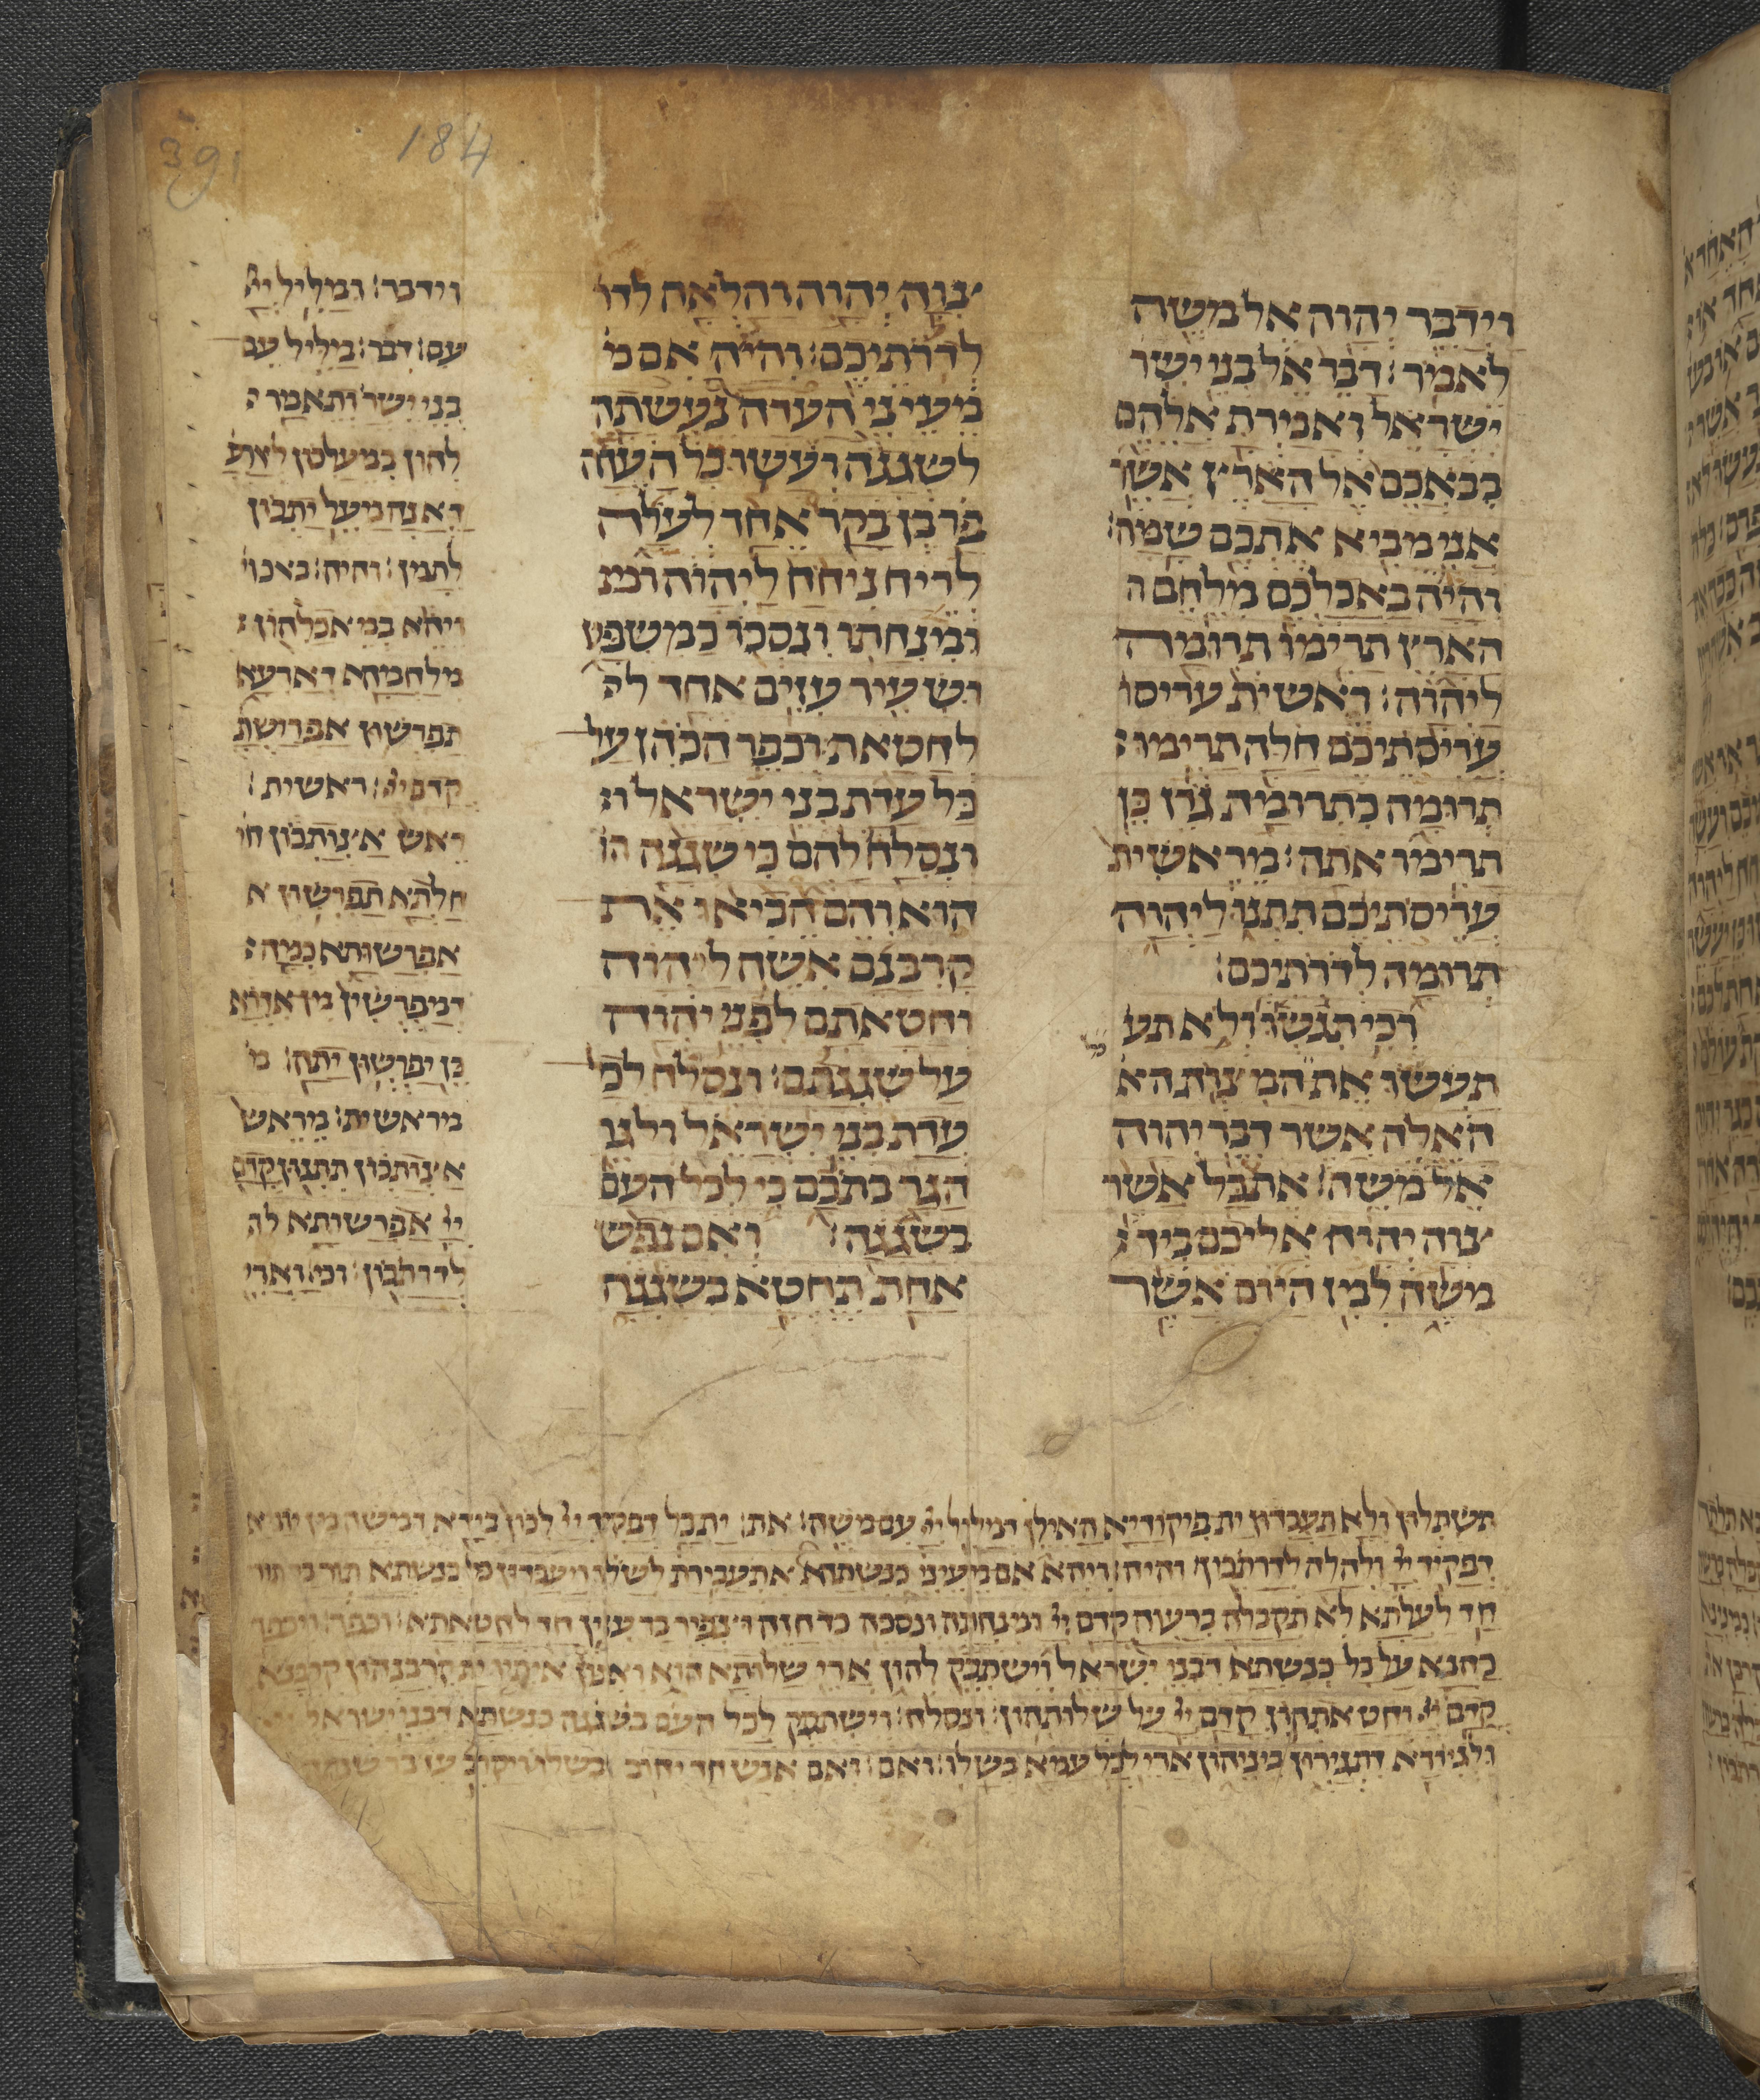 391
184
וידבר יהוה אל משה
לאמר׃ דבר אל בני ישר
ישראל ואמרת אלהם
בבאכם אל הארץ אשר
אני מביא אתכם שמה׃
והיה באכלכם מלחם ה
הארץ תרימו תרומה
ליהוה׃ ראשית עריסו
עריסתיכם חלה תרימו
תרומה כתרומת גרן כן
תרימו אתה׃ מראשית
עריסתיכם תתנו ליהוה
תרומה לדרתיכם׃
וכי תשגו ולא תע
תעשו את המצות הא
האלה אשר דבר יהוה
אל משה׃ את כל אשר
צוה יהוה אליכם ביד
משה למן היום אשר
צוה יהוה והלאה לדו
לדרתיכם׃ והיה אם מ
מעיני העדה נעשתה
לשגגה ועשו כל העדה
פר בן בקר אחד לעלה
לריח ניחח ליהוה ומנ
ומנחתו ונסכו כמשפט
ושעיר עזים אחד לח
לחטאת׃ וכפר הכהן על
כל עדת בני ישראל ו
ונסלח להם כי שגגה הו
הוא והם הביאו את
קרבנם אשה ליהוה
וחטאתם לפני יהוה
על שגגתם׃ ונסלח לכל
עדת בני ישראל ולגר
הגר בתכם כי לכל העם
בשגגה׃ ואם נפש
אחת תחטא בשגגה
וידבר׃ ומליל יי
עם׃ דבר׃ מליל עם
בני ישר ותאמר
להון במעלכון לארע
דאנא מעל יתכון
לתמן׃ והיה׃ באכל
ויהא במיכלכון
מלחמא דארעא
תפרשון אפרשות
קדם יי׃ ראשית׃
ראש אצותכון חל
חלתא תפרשון א
אפרשותא כמה
דמפרשין מן אדרא
כן יפרשון יתה׃ מ
מראשית׃ מראש
אצותכון תתנון קדם
יי אפרשותא לד
לדרתכון׃ וכי׃ וארי
תשתלון ולא תעבדון ית פיקודיא האילן דמליל יי עם משה׃ את׃ ית כל דפקיד יי לכון בידא דמשה מן יומא
דפקיד יי ולהלא לדרתכון׃ והיה׃ ויהא אם מעיני כנשתא אתעבידת לשלו ויעבדון כל כנשתא תור בר תורי
חד לעלתא לאתקבלא ברעוא קדם יי ומנחתה ונסכה כדחזה וצפיר בר עזין חד לחטאתא׃ וכפר׃ ויכפר
כהנא על כל כנשתא דבני ישראל וישתבק להון ארי שלותא היא ואנון איתיו ית קרבנהון קרבנא
קדם יי וחטאתהון קדם יי על שלותהון׃ ונסלח׃ וישתבק לכל העם בשגגה כנשתא דבני ישראל
ולגיורא דיתגיירון ביניהון ארי לכל עמא בשלו׃ ואם׃ ואם אנש חד יחוב בשלו ויקרב עז בת שתה